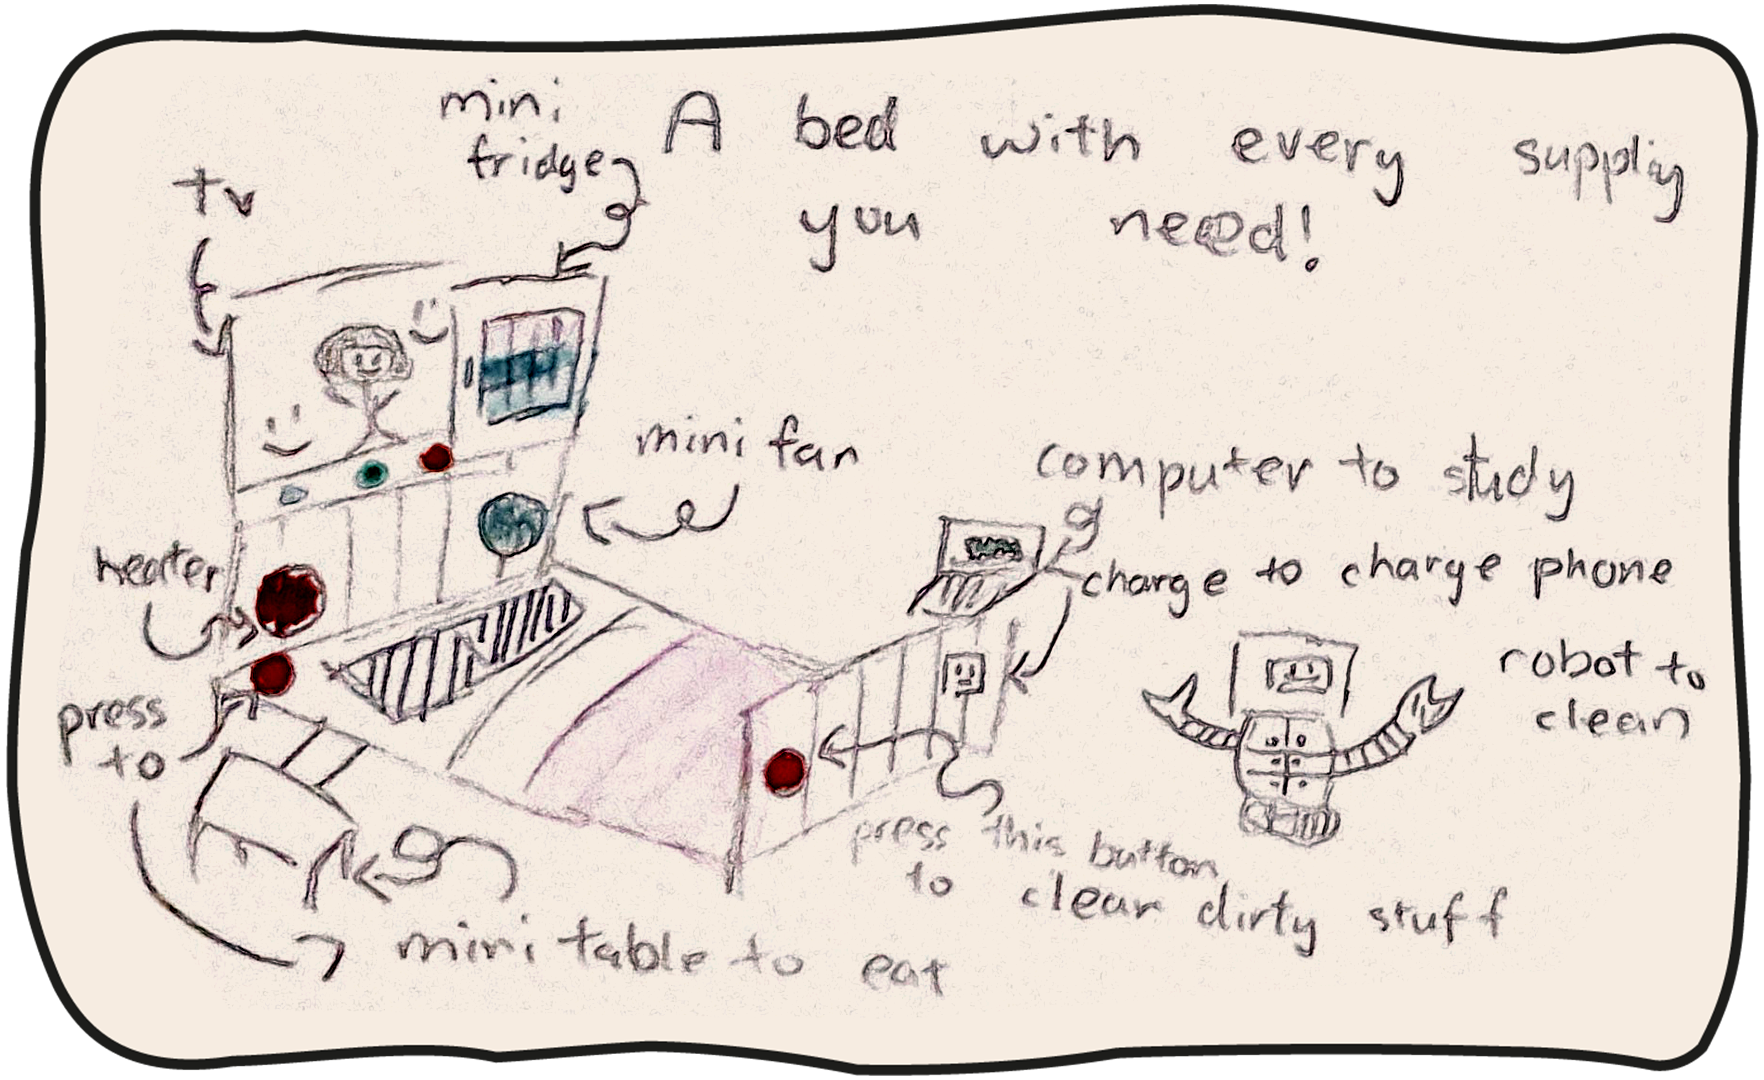 mini
fridge
A bed with every supply
you need!
tv
mini fan
computer to study
heater
charge to charge phone
robot to
clean
press
to
press this button
to clear dirty stuff
mini table to eat